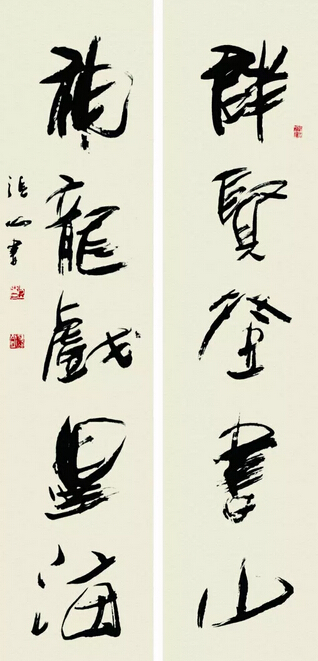 群賢登書山
神龍戲墨海
張山書